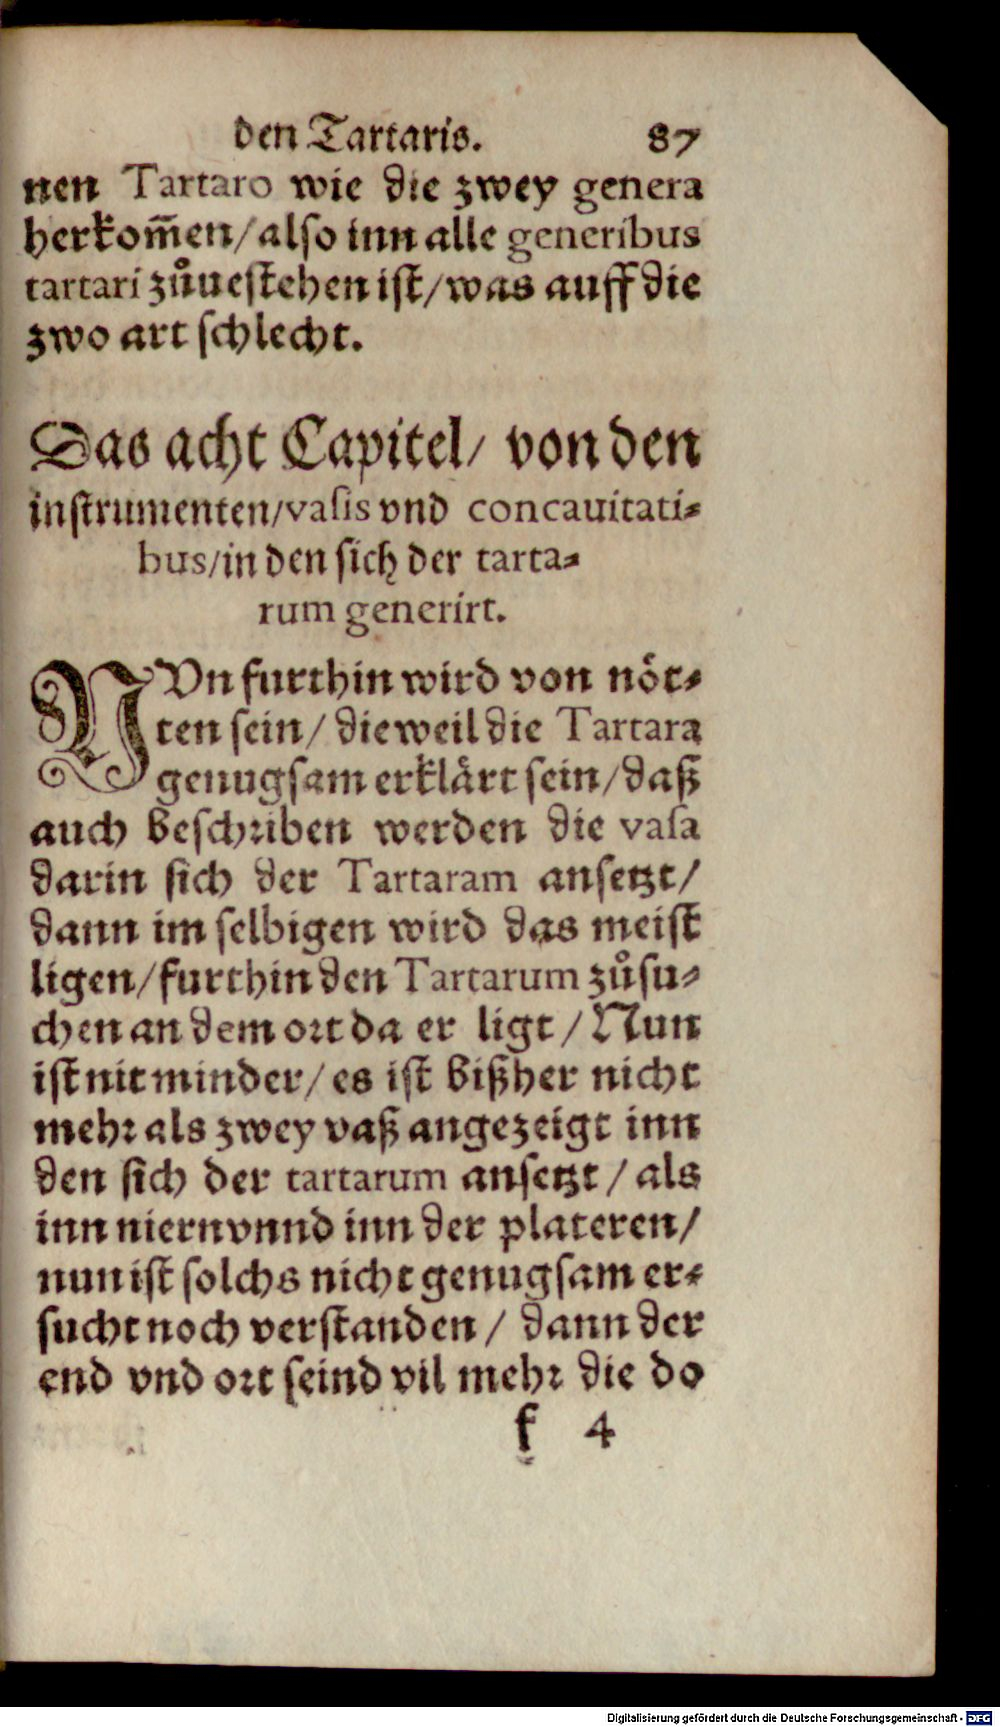 den Tartaris. 87
nen Tartaro wie die zwey genera
herkom̃en/also inn alle generibus
tartari zůuestehen ist/was auff die
zwo art schlecht.
Das acht Capitel/ von den
instrumenten/vasis vnd concauitati-
bus/in den sich der tarta-
rum generirt.
NVn furthin wird von nöt-
ten sein/ dieweil die Tartara
genugsam erklärt sein/daß
auch beschriben werden die vasa
darin sich der Tartaram ansetzt/
dann im selbigen wird das meist
ligen/furthin den Tartarum zůsu-
chen an dem ort da er ligt/Nun
ist nit minder/es ist bißher nicht
mehr als zwey vaß angezeigt inn
den sich der tartarum ansetzt/als
inn niern vnnd inn der plateren/
nun ist solchs nicht genugsam er-
sucht noch verstanden/ dann der
end vnd ort seind vil mehr die do
f 4
Digitalisierung gefördert durch die Deutsche Forschungsgemeinschaft - DFG